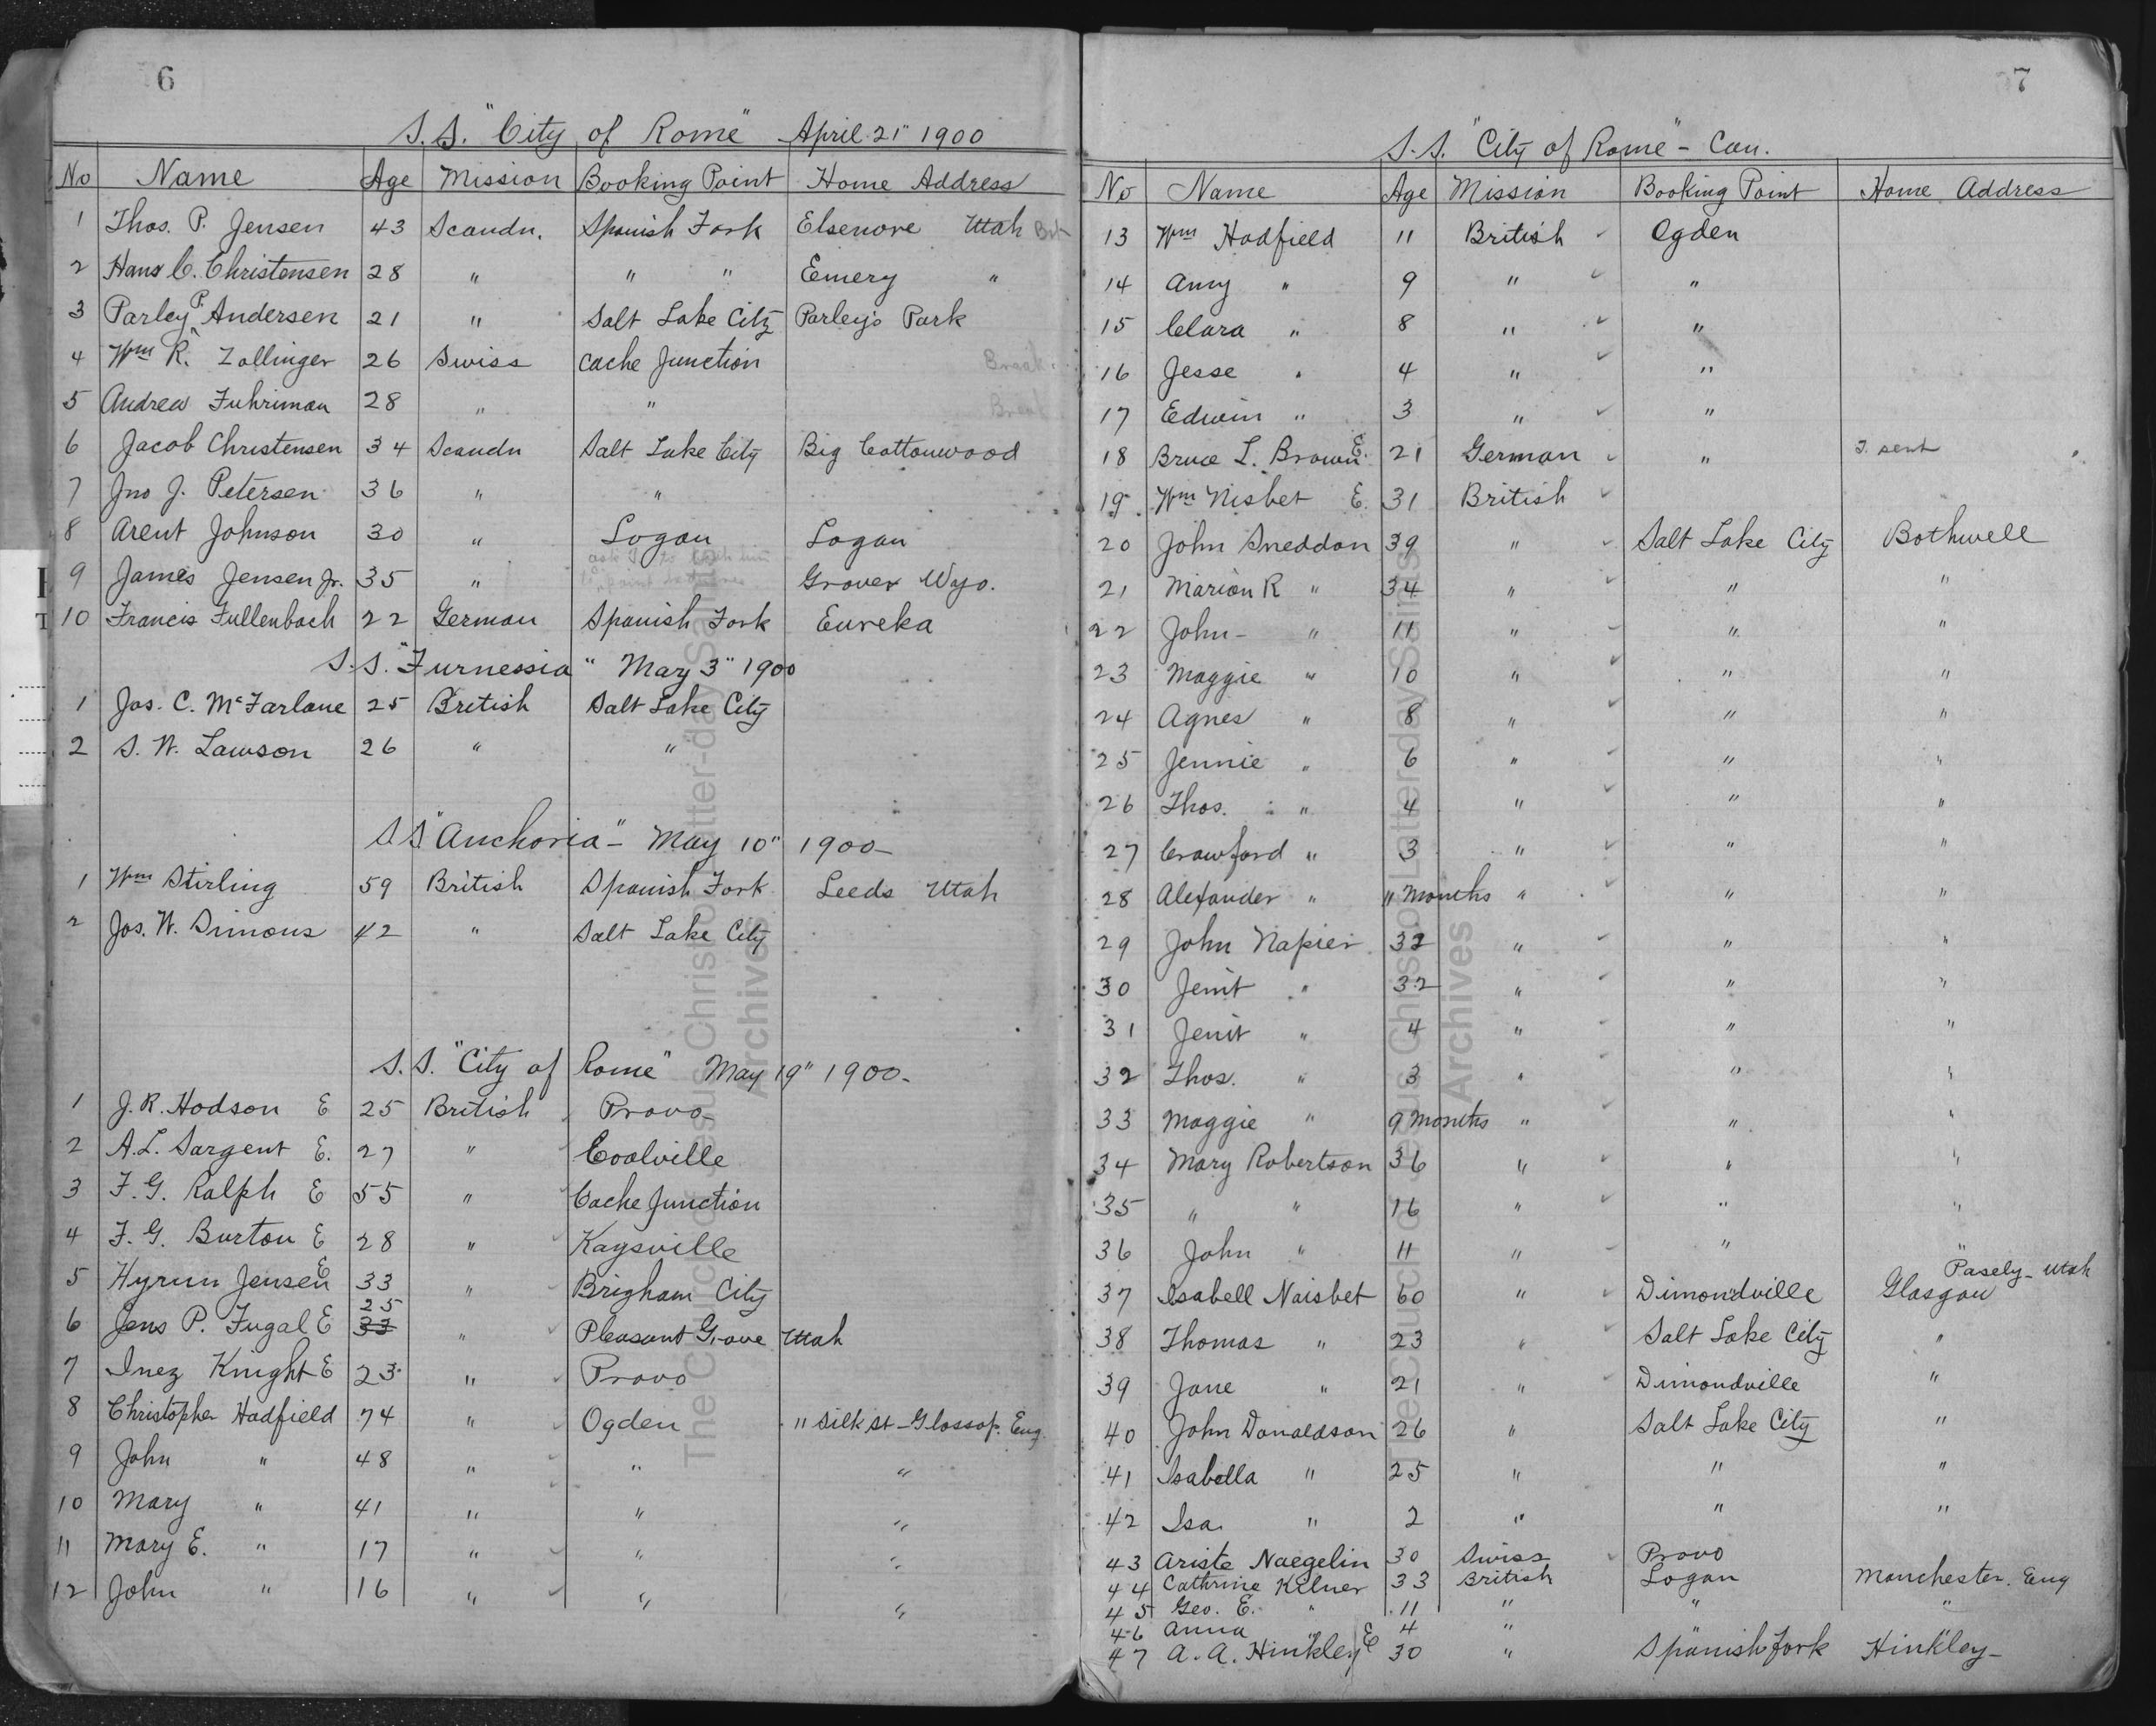 6
S.S. "City of Rome" April 21" 1900
No Name Age Mission Booking Point Home Address
1 Thos. P. Jensen 43 Scandn. Spanish Fork Elsenore Utah
2 Hans C. Christensen 28 " " " Emery "
3 Parley P. Andersen 21 " Salt Lake City Parleys Park
4 Wm R. Zollinger 26 Swiss Cache Junction Break
5 Andrew Fuhriman 28 " " Break
6 Jacob Christensen 34 Scandn Salt Lake City Big Cottonwood
7 Jno J. Petersen 36 " "
8 Arent Johnson 30 " Logan Logan
9 James Jensen Jr. 35 " Grover Wyo.
10 Francis Fullenbach 22 German Spanish Fork Eureka
S.S. "Furnessia" May 3" 1900
1 Jas. C. McFarlane 25 British Salt Lake City
2 S. W. Lawson 26 " "
S.S "Anchoria" - May 10" 1900-
1 Wm Stirling 59 British Spanish Fork Leeds Utah
2 Jos. W. Simons 42 " Salt Lake City
S.S. "City of Rome" May 19" 1900-
1 J. R. Hodson E 25 British Provo
2 A. L. Sargent E. 27 " Coalville
3 F. G. Ralph E 55 " Cache Junction
4 F. G. Burton E 28 " Kaysville
5 Hyrum Jensen E 33 " Brigham City
6 Jens P. Fugal E 25 33 " Pleasant Grove Utah
7 Inez Knight E 23 " Provo
8 Christopher Hadfield 74 " Ogden 11 Silk St - Glossop. Eng.
9 John " 48 " " "
10 Mary " 41 " " "
11 Mary E. " 17 " " "
12 John " 16 " " "
7
S.S. "City of Rome" - Con.
No Name Age Mission Booking Point Home Address
13 Wm Hadfield 11 British Ogden
14 Amy " 9 " "
15 Clara " 8 " "
16 Jesse " 4 " "
17 Edwin " 3 " "
18 Bruce L. Brown E. 21 German " T. sent
19 Wm Nisbet E. 31 British
20 John Sneddon 39 " Salt Lake City Bothwell
21 Marion R " 34 " " "
22 John - " 11 " " "
23 Maggie " 10 " " "
24 Agnes " 8 " " "
25 Jennie " 6 " " "
26 Thos. " 4 " " "
27 Crawford " 3 " " "
28 Alexander " 11 months " " "
29 John Napier 32 " " "
30 Jenit " 32 " " "
31 Jenit " 4 " " "
32 Thos. " 3 " " "
33 Maggie " 9 months " " "
34 Mary Robertson 36 " " "
35 " " 16 " " "
36 John " 11 " " "
Pasely - Utah
37 Isabell Naisbet 60 " Dimondville Glasgow
38 Thomas " 23 " Salt Lake City "
39 Jane " 21 " Dimondville "
40 John Donaldson 26 " Salt Lake City "
41 Isabella " 25 " " "
42 Isa. " 2 " " "
43 Ariste Naegelin 30 Swiss Provo
44 Cathrine Kilner 33 British Logan Manchester. Eng
45 Geo. E. " 11 " " "
46 Anna " 4 " " "
47 A. A. Hinkley E 30 " Spanish Fork Hinkley-
The Church of Jesus Christ of Latter-day Saints
Archives
The Church of Jesus Christ of Latter-day Saints
Archives